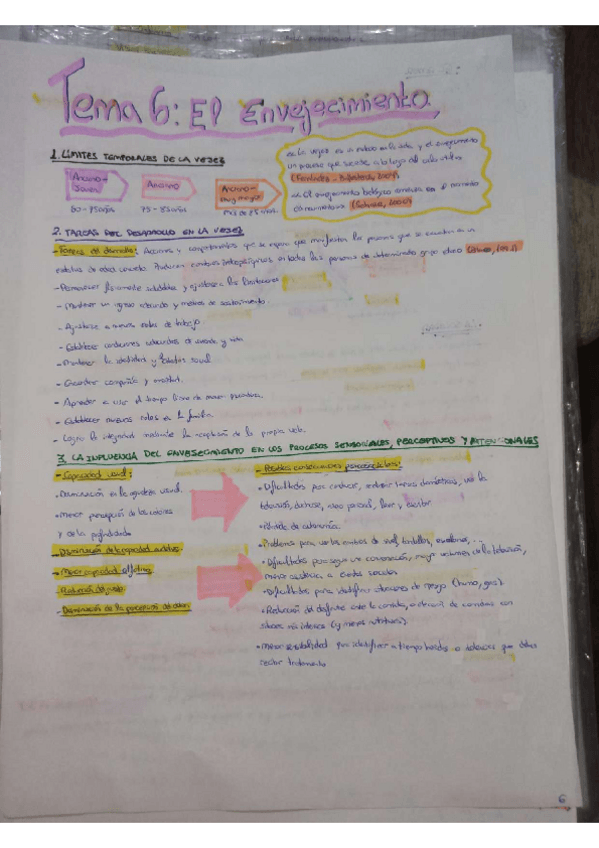 Tema 6: El Envejecimiento
1. LÍMITES TEMPORALES DE LA VEJEZ
Anciano-joven
60-75 años
Anciano
75-85 años
Anciano-muy mayor
más de 85 años
"La vejez es un estado en la vida, y el envejecimiento
un proceso que sucede a lo largo del ciclo vital"
(Fernández-Ballesteros,
"El envejecimiento biológico comienza en el momento
2. TAREAS DEL DESARROLLO EN LA VEJEZ
- Tareas del desarrollo: Acciones y comportamientos que se espera que manifiesten las personas que se encuentran en un
estadio de edad concreto. Producen cambios en todas las personas de determinado grupo etario
- Permanecer físicamente saludables y ajustarse a las limitaciones
- Mantener un ingreso adecuado y medios de sostenimiento.
- Ajustarse a nuevos roles de trabajo.
- Establecer condiciones adecuadas de vivienda y vida
- Mantener la identidad y estatus social
- Encontrar compañía y amistad.
- Aprender a usar el tiempo libre de manera placentera.
- Establecer nuevos roles en la familia.
- Lograr la integridad mediante la aceptación de la propia vida.
3. LA INFLUENCIA DEL ENVEJECIMIENTO EN LOS PROCESOS SENSORIALES, PERCEPTIVOS Y ATENCIONALES
- Capacidad visual:
• Disminución en la agudeza visual.
• Menor percepción de los colores
y de la profundidad
- Disminución de la capacidad auditiva
- Menor capacidad olfativa
- Reducción del gusto
- Disminución de la percepción del dolor
- Posibles consecuencias psicosociales:
• Dificultades para conducir, realizar tareas domésticas, ver la
televisión, ducharse, leer y escribir
• Pérdida de autonomía.
• Problemas para ver los cambios de nivel, bordillos, escaleras, ...
• Dificultades para seguir una conversación, mayor volumen en la televisión,
menor asistencia a eventos sociales
• Dificultades para identificar situaciones de riesgo (humo, gas).
• Reducción del disfrute ante la comida, o elección de comidas con
sabores más intensos (y menos nutritivos).
• Menor sensibilidad para identificar a tiempo heridas o dolencias que deben
recibir tratamiento
6